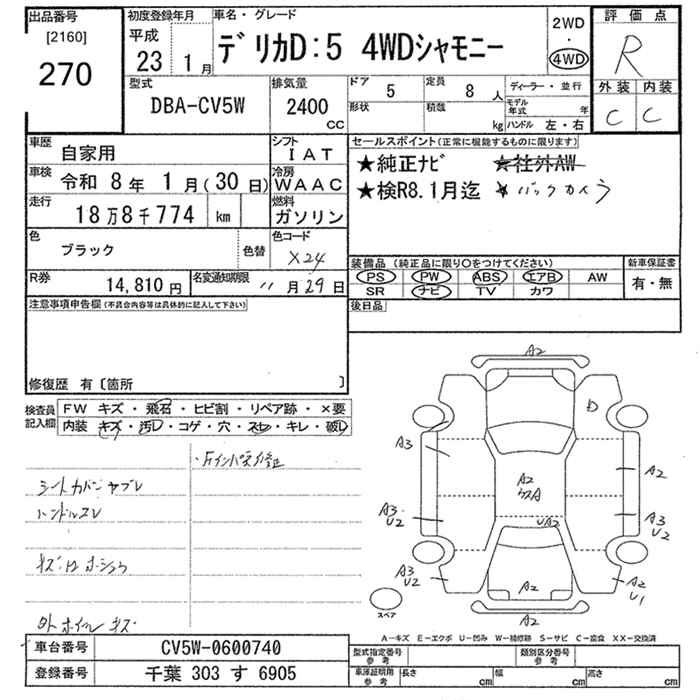 出品番号
[2160]
270
初度登録年月
平成
23
1月
車名・グレード
デリカD:5 4WDシャモニー
2WD
・
4WD
評価点
R
外装 内装
C C
型式
DBA-CV5W
排気量
2400
CC
ドア
5
定員
8人
形状
積載
kg
ディーラー・並行
モデル年式 年
ハンドル 左・右
車歴
自家用
シフト
IAT
車検
令和 8年 1月(30日)
冷房
WAAC
走行
18万8千774
km
燃料
ガソリン
色
ブラック
色替
色コード
X24
R券
14,810円
名変通知期限
11月29日
セールスポイント(正常に機能するものに限ります)
★純正ナビ ★社外AW
★検R8.1月迄 ★バックカメラ
装備品(純正品に限り○をつけてください)
PS PW ABS エアB AW
SR ナビ TV カワ
新車保証書
有・無
後日品
注意事項申告欄(不具合内容等は具体的に記入して下さい)
修復歴 有〔箇所 〕
検査員記入欄
FW キズ・飛石・ヒビ割・リペア跡・×要
内装 キズ・汚レ・コゲ・穴・スレ・キレ・破レ
・Fインパネ修正
シートカバーヤブレ
ハンドルスレ
キズ凹ホショウ
外ホイルキズ
A2
D
A3
A2
A2
A3
U2
UA2
A3
U2
A3
U2
A2
A2
U1
A2
スペア
A-キズ E-エクボ U-凹み W-補修跡 S-サビ C-腐食 XX-交換済
車台番号
CV5W-0600740
登録番号
千葉 303 す 6905
型式指定番号
参考
類別区分番号
参考
車庫証明用
参考
長さ cm
幅 cm
高さ cm